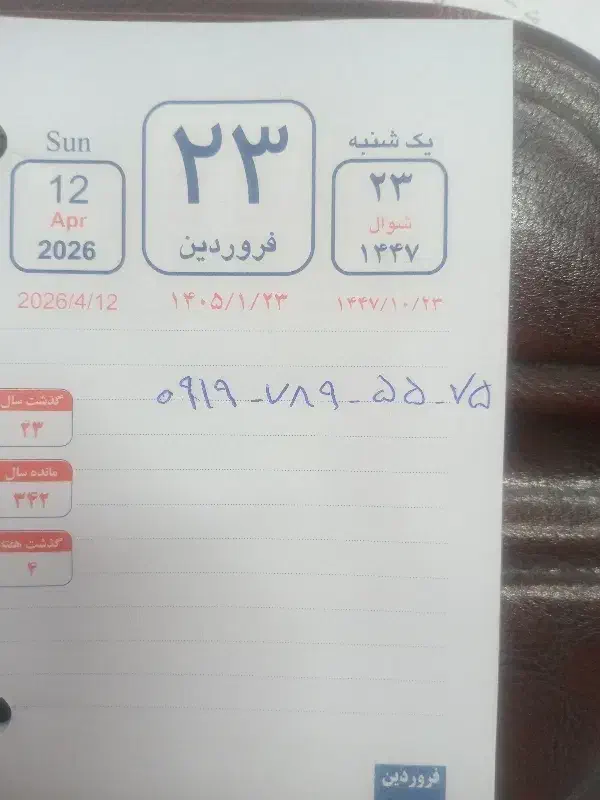 یک شنبه
۲۳
شوال
۱۴۴۷
۱۴۴۷/۱۰/۲۳
۲۳
فروردین
۱۴۰۵/۱/۲۳
Sun
12
Apr
2026
2026/4/12
۰۹۱۹-۷۸۹-۵۵-۷۵
گذشت سال
۲۳
مانده سال
۳۴۲
گذشت هفته
۴
فروردین